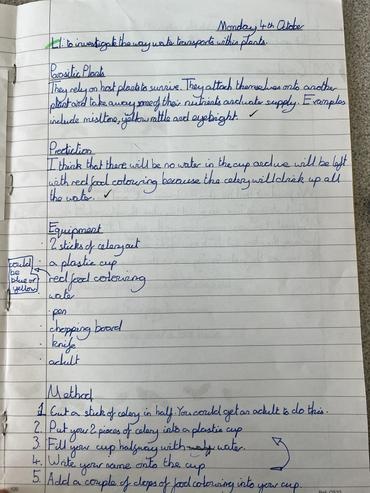 Monday 4th October
LI: to investigate the way water transports within plants.
Parasitic Plants
They rely on host plants to survive. They attach themselves onto another
plant and take away some of their nutrients and water supply. Examples
include misltine, yellow rattle and eyebright. ✓
Prediction
I think that there will be no water in the cup and we will be left
with red food colouring because the celery will drink up all
the water. ✓
Equipment
· 2 sticks of celery cut
· a plastic cup
could be blue or yellow
· red food colouring
· water
· pen
· chopping board
· knife
· adult
Method
1. Cut a stick of celery in half. You could get an adult to do this.
2. Put your 2 pieces of celery into a plastic cup
3. Fill your cup halfway with water.
4. Write your name onto the cup
5. Add a couple of drops of food colouring into your cup.